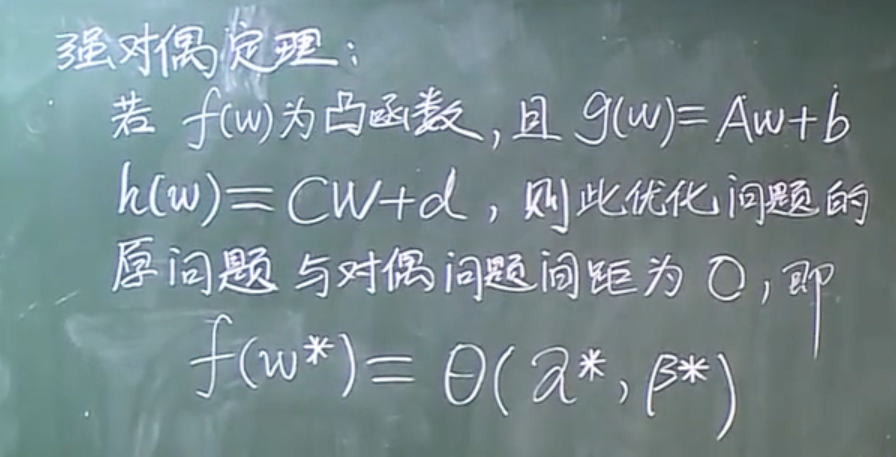 强对偶定理:
若 f(w)为凸函数,且 g(w)=Aw+b
h(w)=CW+d,则此优化问题的
原问题与对偶问题间距为0,即
f(w*)=θ(α*,β*)